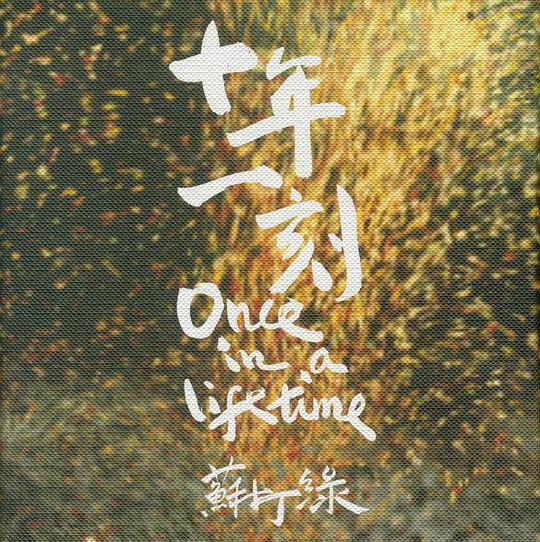 十年
一刻
Once
in a
lifetime
蘇打綠